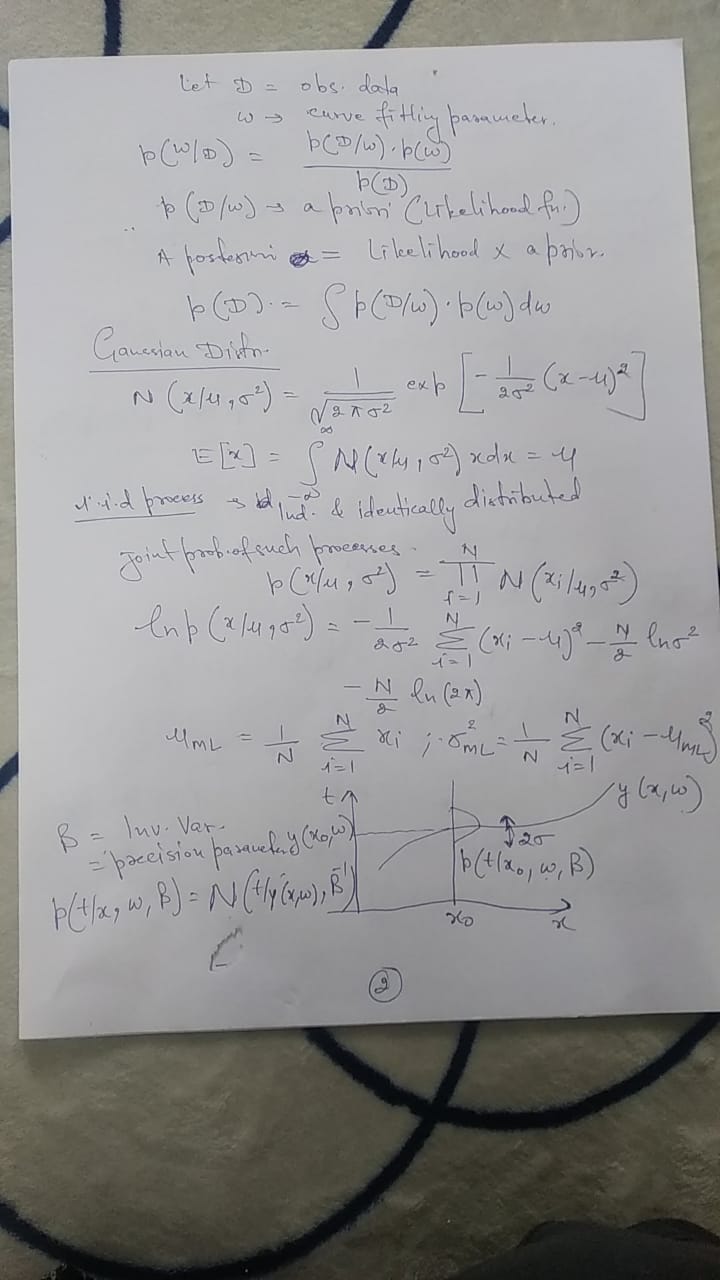 Let D = obs. data
w → curve fitting parameter.
p(w/D) = p(D/w)·p(w) / p(D)
p(D/w) → a priori (Likelihood fn.)
A posteriori = Likelihood x a prior.
p(D) = ∫ p(D/w)·p(w) dw
Gaussian Distn.
N(x/μ, σ²) = 1/√(2πσ²) exp[-1/2σ² (x-μ)²]
E[x] = ∫_{-∞}^{∞} N(x/μ, σ²) x dx = μ
i.i.d process → Ind. & identically distributed
Joint prob. of such processes.
p(x/μ, σ²) = ∏_{i=1}^{N} N(xi/μ, σ²)
ln p(x/μ, σ²) = -1/2σ² Σ_{i=1}^{N} (xi - μ)² - N/2 ln σ²
- N/2 ln(2π)
μML = 1/N Σ_{i=1}^{N} xi ; σ²ML = 1/N Σ_{i=1}^{N} (xi - μML)²
t
y(x,w)
B = Inv. Var.
= precision parameter
y(x0,w)
2σ
p(t/x0, w, B)
p(t/x, w, B) = N(t/y(x,w), B⁻¹)
x0
x
2